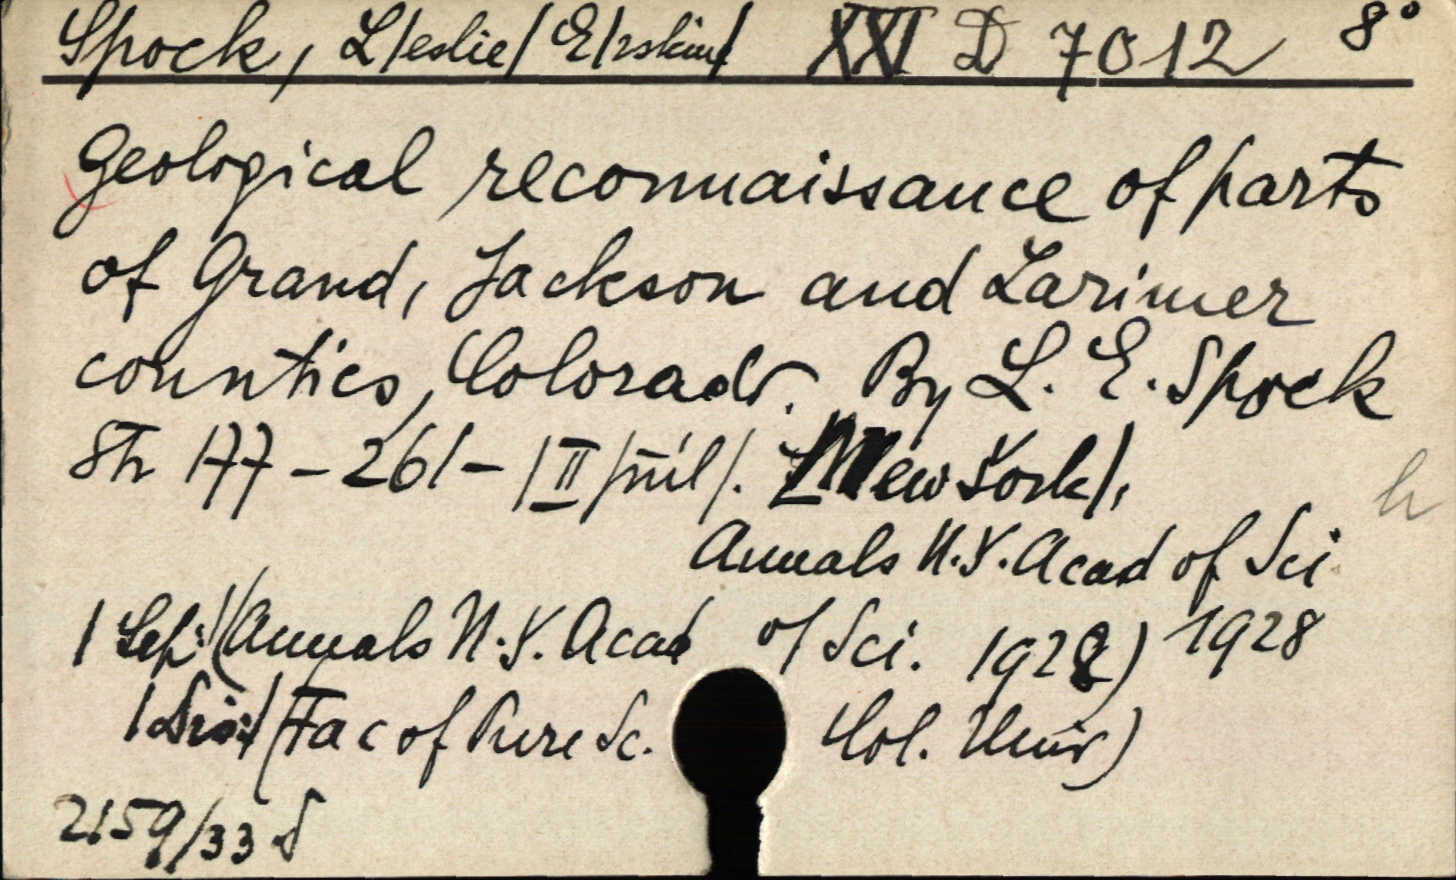 Spock, L/eslie/ E/rskine/ XXI D 7012 8°
Geological reconnaissance of parts
of Grand, Jackson and Larimer
counties, Colorado. By L. E. Spock
Str 177-261- /II příl/. /New York/,
Annals N.Y. Acad of Sci
1928
/Sep:/ (Annals N.Y. Acad of Sci. 1928)
/Dis:/ (Fac of Pure Sc. Col. Univ)
2159/33 S
h